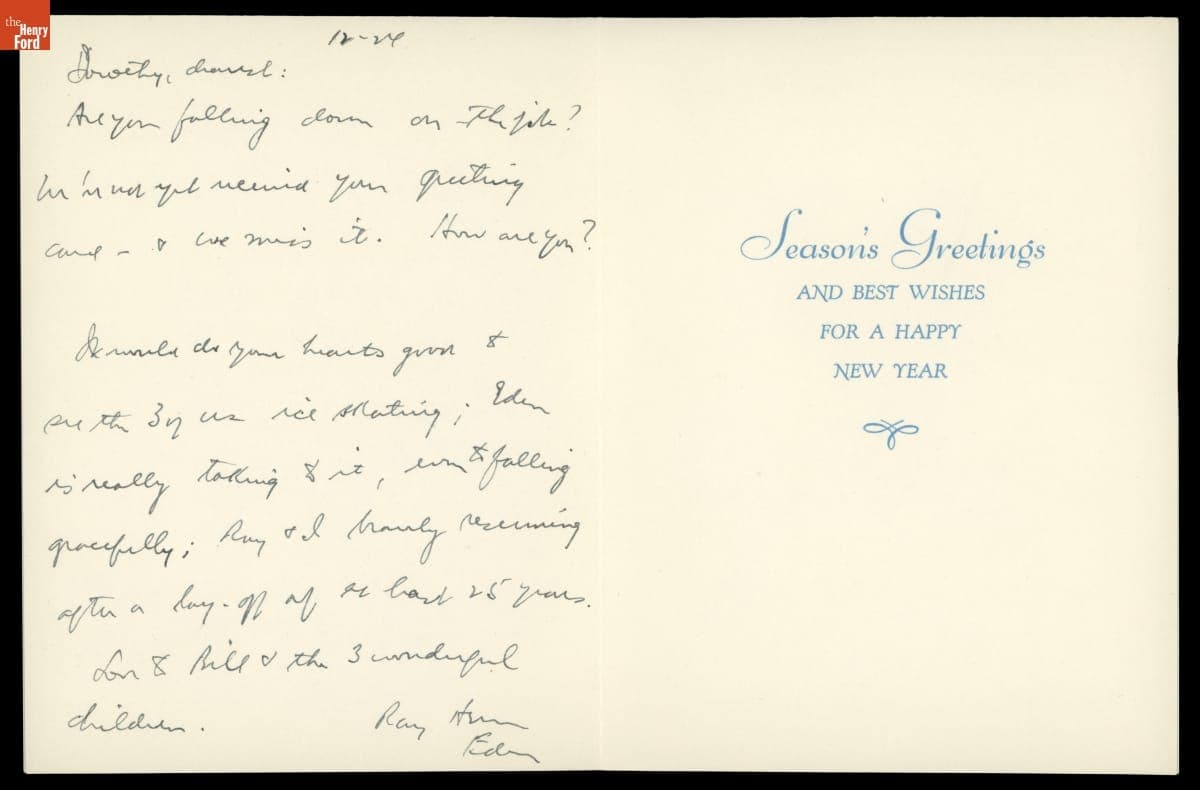 the
Henry
Ford
12-24
Dorothy, dearest:
Are you falling down on the job?
We've not yet received your greeting
card - & we miss it. How are you?
It would do your hearts good to
see the 3 of us ice skating; Eden
is really taking to it, even to falling
gracefully; Ray & I bravely resuming
after a lay-off of at least 25 years.
Love to Bill & the 3 wonderful
children. Ray
Eden
Season's Greetings
AND BEST WISHES
FOR A HAPPY
NEW YEAR